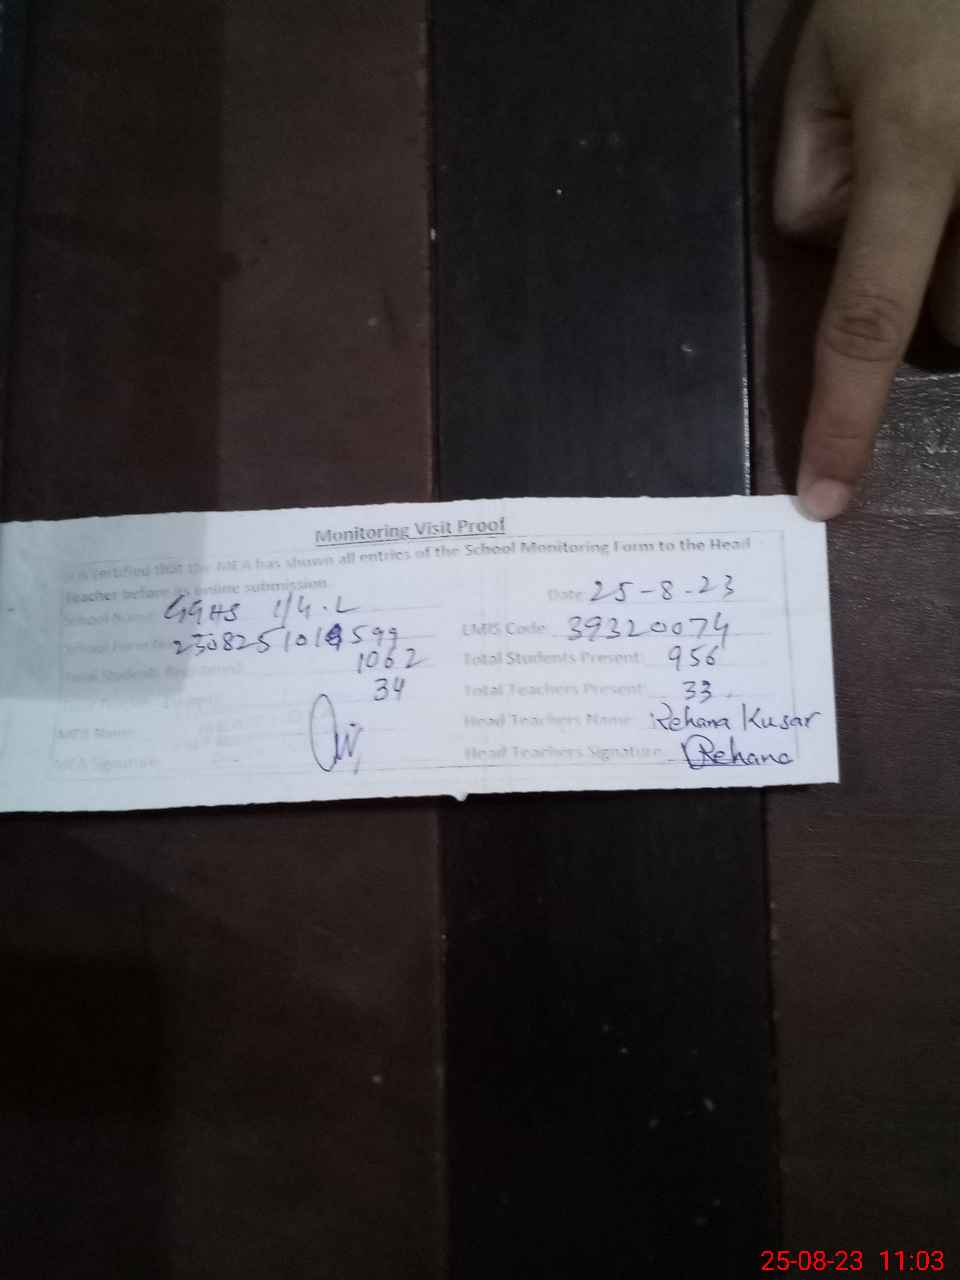 Monitoring Visit Proof
It is certified that the MEA has shown all entries of the School Monitoring Form to the Head
Teacher before its online submission.
School Name GGHS 1/4.L Date: 25-8-23
School Form No. 599 EMIS Code: 39320074
Total Students Registered: 1062 Total Students Present: 956
34 Total Teachers Present: 33
MEA Name: Head Teachers Name: Rehana Kusar
MEA Signature: Head Teachers Signature: Rehana
25-08-23 11:03